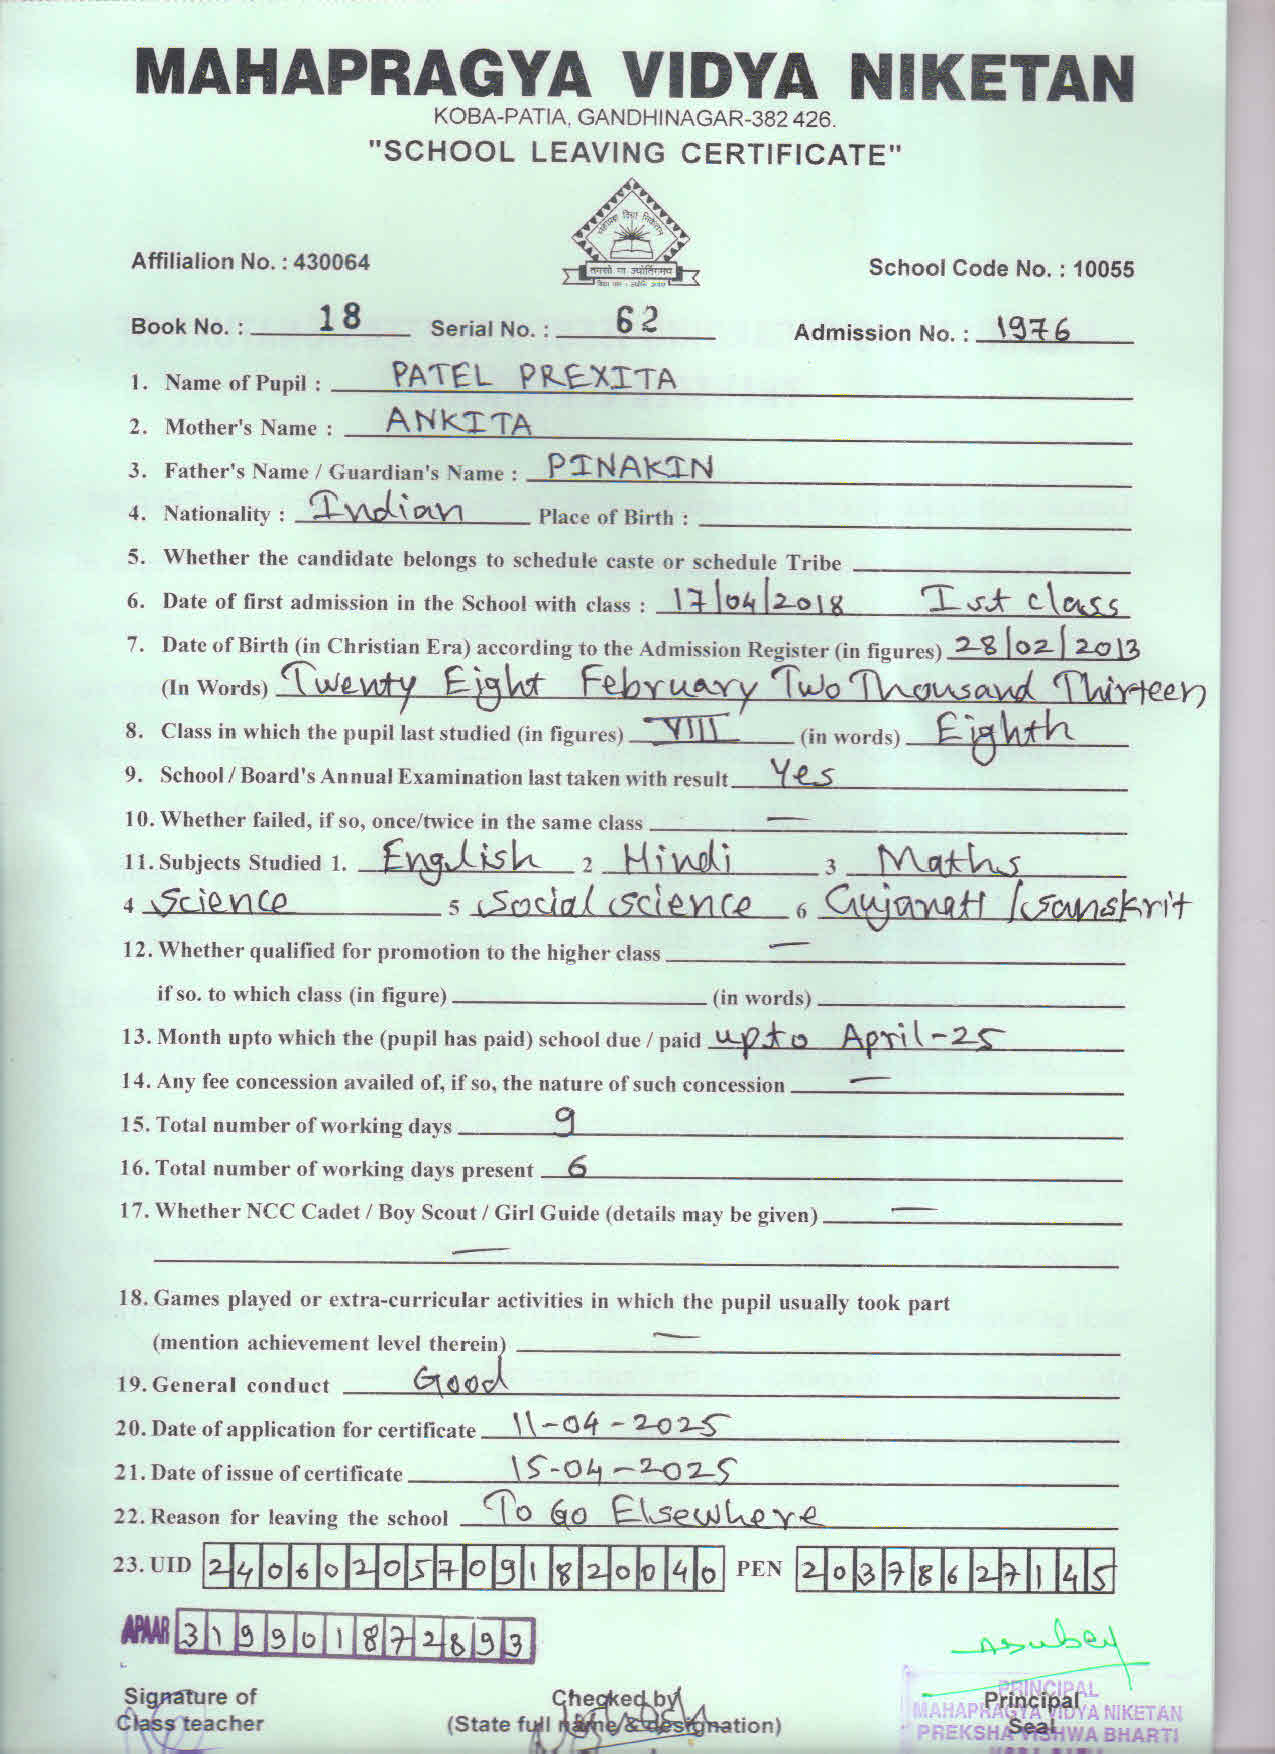 MAHAPRAGYA VIDYA NIKETAN
KOBA-PATIA, GANDHINAGAR-382 426.
"SCHOOL LEAVING CERTIFICATE"
महाप्रज्ञ विद्या निकेतन
तमसो मा ज्योतिर्गमय
Affilialion No. : 430064
School Code No. : 10055
Book No. : 18 Serial No. : 62 Admission No. : 1976
1. Name of Pupil : PATEL PREXITA
2. Mother's Name : ANKITA
3. Father's Name / Guardian's Name : PINAKIN
4. Nationality : Indian Place of Birth :
5. Whether the candidate belongs to schedule caste or schedule Tribe
6. Date of first admission in the School with class : 17/04/2018 Ist class
7. Date of Birth (in Christian Era) according to the Admission Register (in figures) 28/02/2013
(In Words) Twenty Eight February Two Thousand Thirteen
8. Class in which the pupil last studied (in figures) VIII (in words) Eighth
9. School / Board's Annual Examination last taken with result Yes
10. Whether failed, if so, once/twice in the same class —
11. Subjects Studied 1. English 2 Hindi 3 Maths
4 Science 5 Social Science 6 Gujarati / Sanskrit
12. Whether qualified for promotion to the higher class —
if so. to which class (in figure) (in words)
13. Month upto which the (pupil has paid) school due / paid upto April-25
14. Any fee concession availed of, if so, the nature of such concession —
15. Total number of working days 9
16. Total number of working days present 6
17. Whether NCC Cadet / Boy Scout / Girl Guide (details may be given) —
—
18. Games played or extra-curricular activities in which the pupil usually took part
(mention achievement level therein) —
19. General conduct Good
20. Date of application for certificate 11-04-2025
21. Date of issue of certificate 15-04-2025
22. Reason for leaving the school To Go Elsewhere
23. UID 240602057091820040 PEN 20378627145
APAAR 319901872893
Signature of
Class teacher
Checked by
(State full name & designation)
Principal
Seal
PRINCIPAL
MAHAPRAGYA VIDYA NIKETAN
PREKSHA VISHWA BHARTI